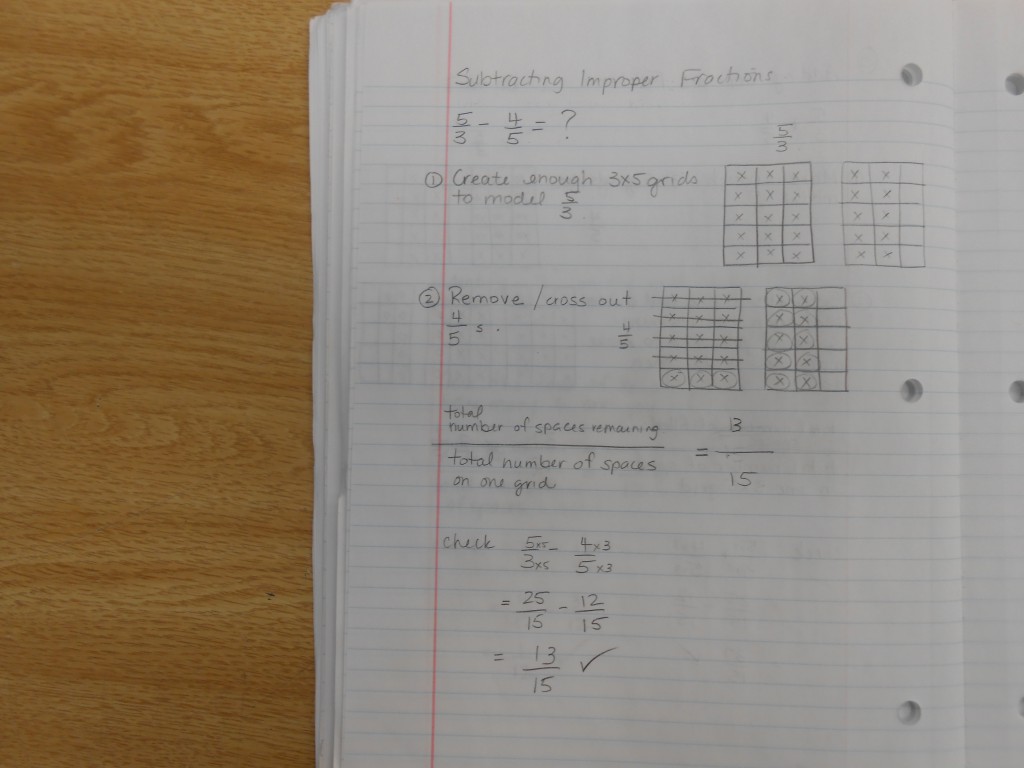 Subtracting Improper Fractions
5/3 - 4/5 = ?
5/3
① Create enough 3x5 grids
to model 5/3
x x x x x
x x x x x
x x x x x
x x x x x
x x x x x
② Remove / cross out
4/5 s.
4/5
x x x x x
x x x x x
x x x x x
x x x x x
x x x x x
total
number of spaces remaining
total number of spaces
on one grid
= 13/15
check 5x5/3x5 - 4x3/5x3
= 25/15 - 12/15
= 13/15 ✓